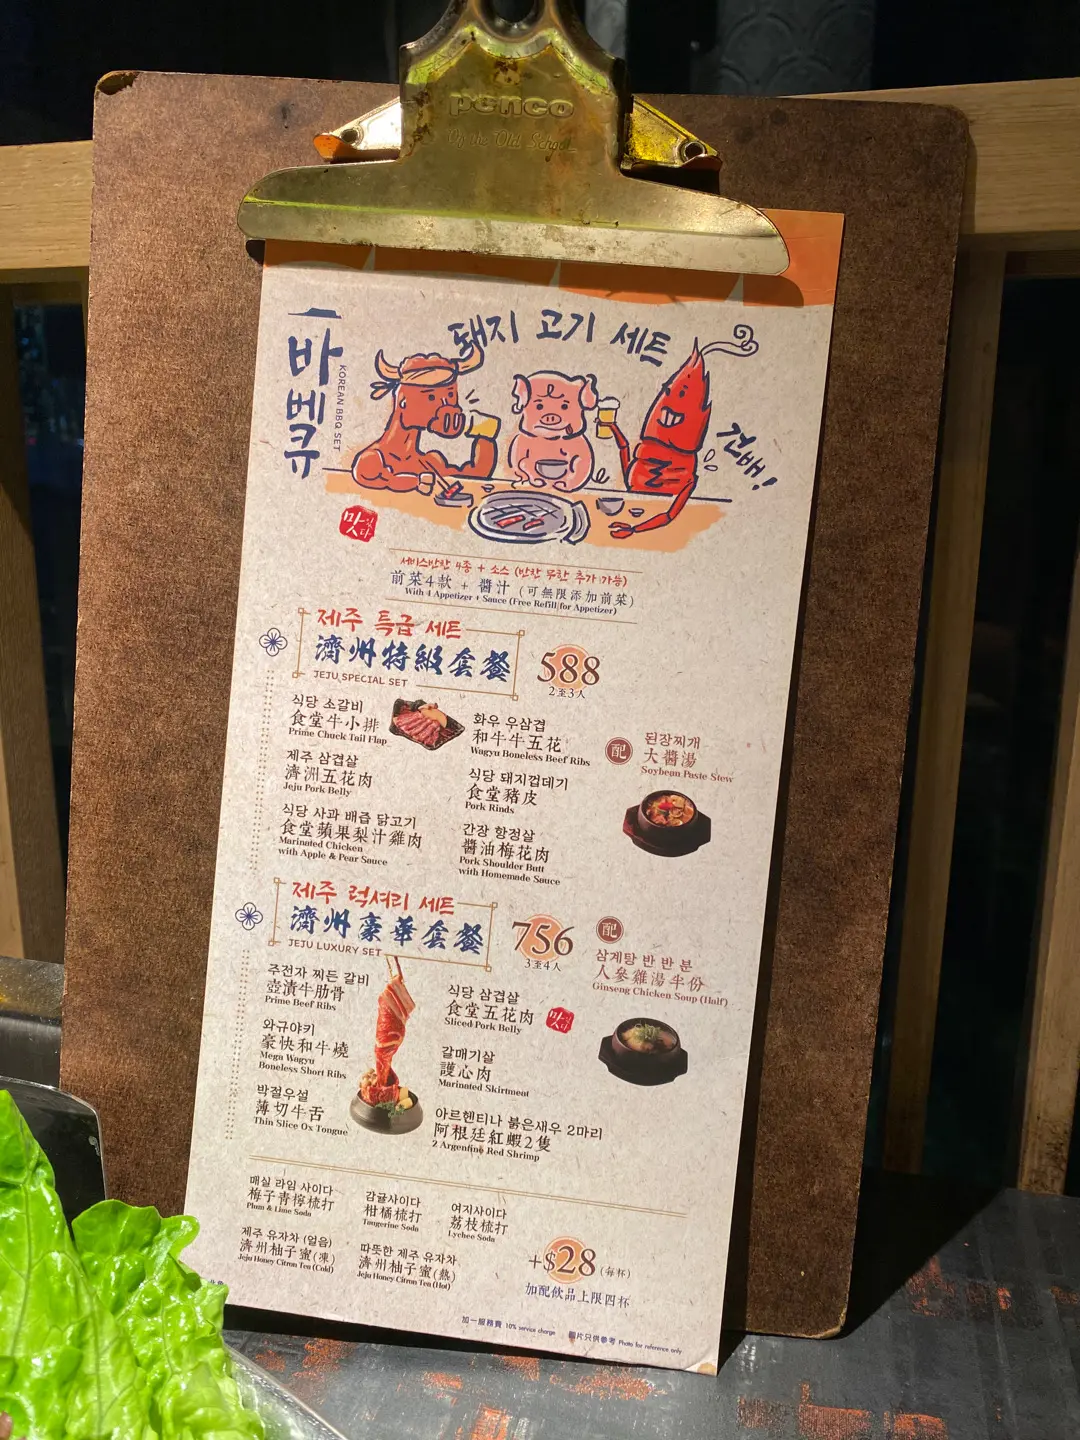 penco
By the Old School
바베큐
KOREAN BBQ SET
돼지 고기 세트
건배!
맛있다
서비스반찬 4종 + 소스 (반찬 무한 추가 가능)
前菜4款 + 醬汁 (可無限添加前菜)
With 4 Appetizer + Sauce (Free Refill for Appetizer)
제주 특급 세트
濟州特級套餐
JEJU SPECIAL SET
588
2至3人
식당 소갈비
食堂牛小排
Prime Chuck Tail Flap
화우 우삼겹
和牛牛五花
Wagyu Boneless Beef Ribs
配
된장찌개
大醬湯
Soybean Paste Stew
제주 삼겹살
濟洲五花肉
Jeju Pork Belly
식당 돼지껍데기
食堂豬皮
Pork Rinds
식당 사과 배즙 닭고기
食堂蘋果梨汁雞肉
Marinated Chicken
with Apple & Pear Sauce
간장 항정살
醬油梅花肉
Pork Shoulder Butt
with Homemade Sauce
제주 럭셔리 세트
濟州豪華套餐
JEJU LUXURY SET
756
3至4人
配
삼계탕 반 반 분
人參雞湯半份
Ginseng Chicken Soup (Half)
주전자 찌든 갈비
壺漬牛肋骨
Prime Beef Ribs
식당 삼겹살
食堂五花肉
Sliced Pork Belly
맛있다
와규야키
豪快和牛燒
Mega Wagyu
Boneless Short Ribs
갈매기살
護心肉
Marinated Skirtment
박절우설
薄切牛舌
Thin Slice Ox Tongue
아르헨티나 붉은새우 2마리
阿根廷紅蝦2隻
2 Argentine Red Shrimp
매실 라임 사이다
梅子青檸梳打
Plum & Lime Soda
감귤사이다
柑橘梳打
Tangerine Soda
여지사이다
荔枝梳打
Lychee Soda
제주 유자차 (얼음)
濟州柚子蜜(凍)
Jeju Honey Citron Tea (Cold)
따뜻한 제주 유자차
濟州柚子蜜(熱)
Jeju Honey Citron Tea (Hot)
+$28 (每杯)
加配飲品上限四杯
加一服務費 10% service charge
圖片只供參考 Photo for reference only